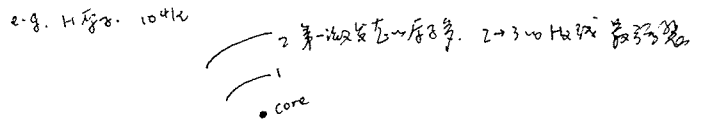 e.g. H原子. 10⁴K
2 第一激发态的原子多. 2→3的Hα线最强
1
core